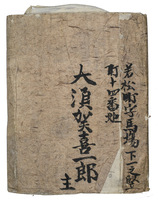 若松町字馬場下一ノ町
町十四番地
大須賀喜一郎
主